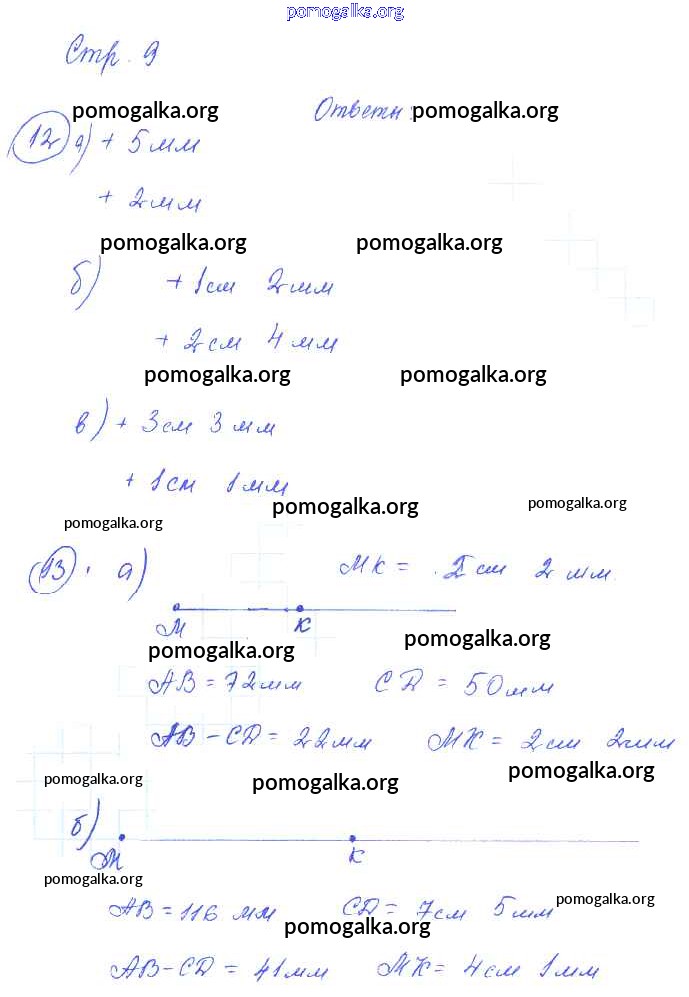 pomogalka.org
Стр. 9
pomogalka.org Ответы: pomogalka.org
12 а) + 5 мм
+ 2 мм
pomogalka.org pomogalka.org
б) + 1 см 2 мм
+ 2 см 4 мм
pomogalka.org pomogalka.org
в) + 3 см 3 мм
+ 1 см 1 мм
pomogalka.org pomogalka.org
pomogalka.org
13. а) МК = 2 см 2 мм.
М К
pomogalka.org pomogalka.org
АВ = 72 мм CD = 50 мм
АВ - CD = 22 мм МК = 2 см 2 мм
pomogalka.org pomogalka.org pomogalka.org
б)
М К
pomogalka.org
АВ = 116 мм CD = 7 см 5 мм pomogalka.org
pomogalka.org
АВ - CD = 41 мм МК = 4 см 1 мм